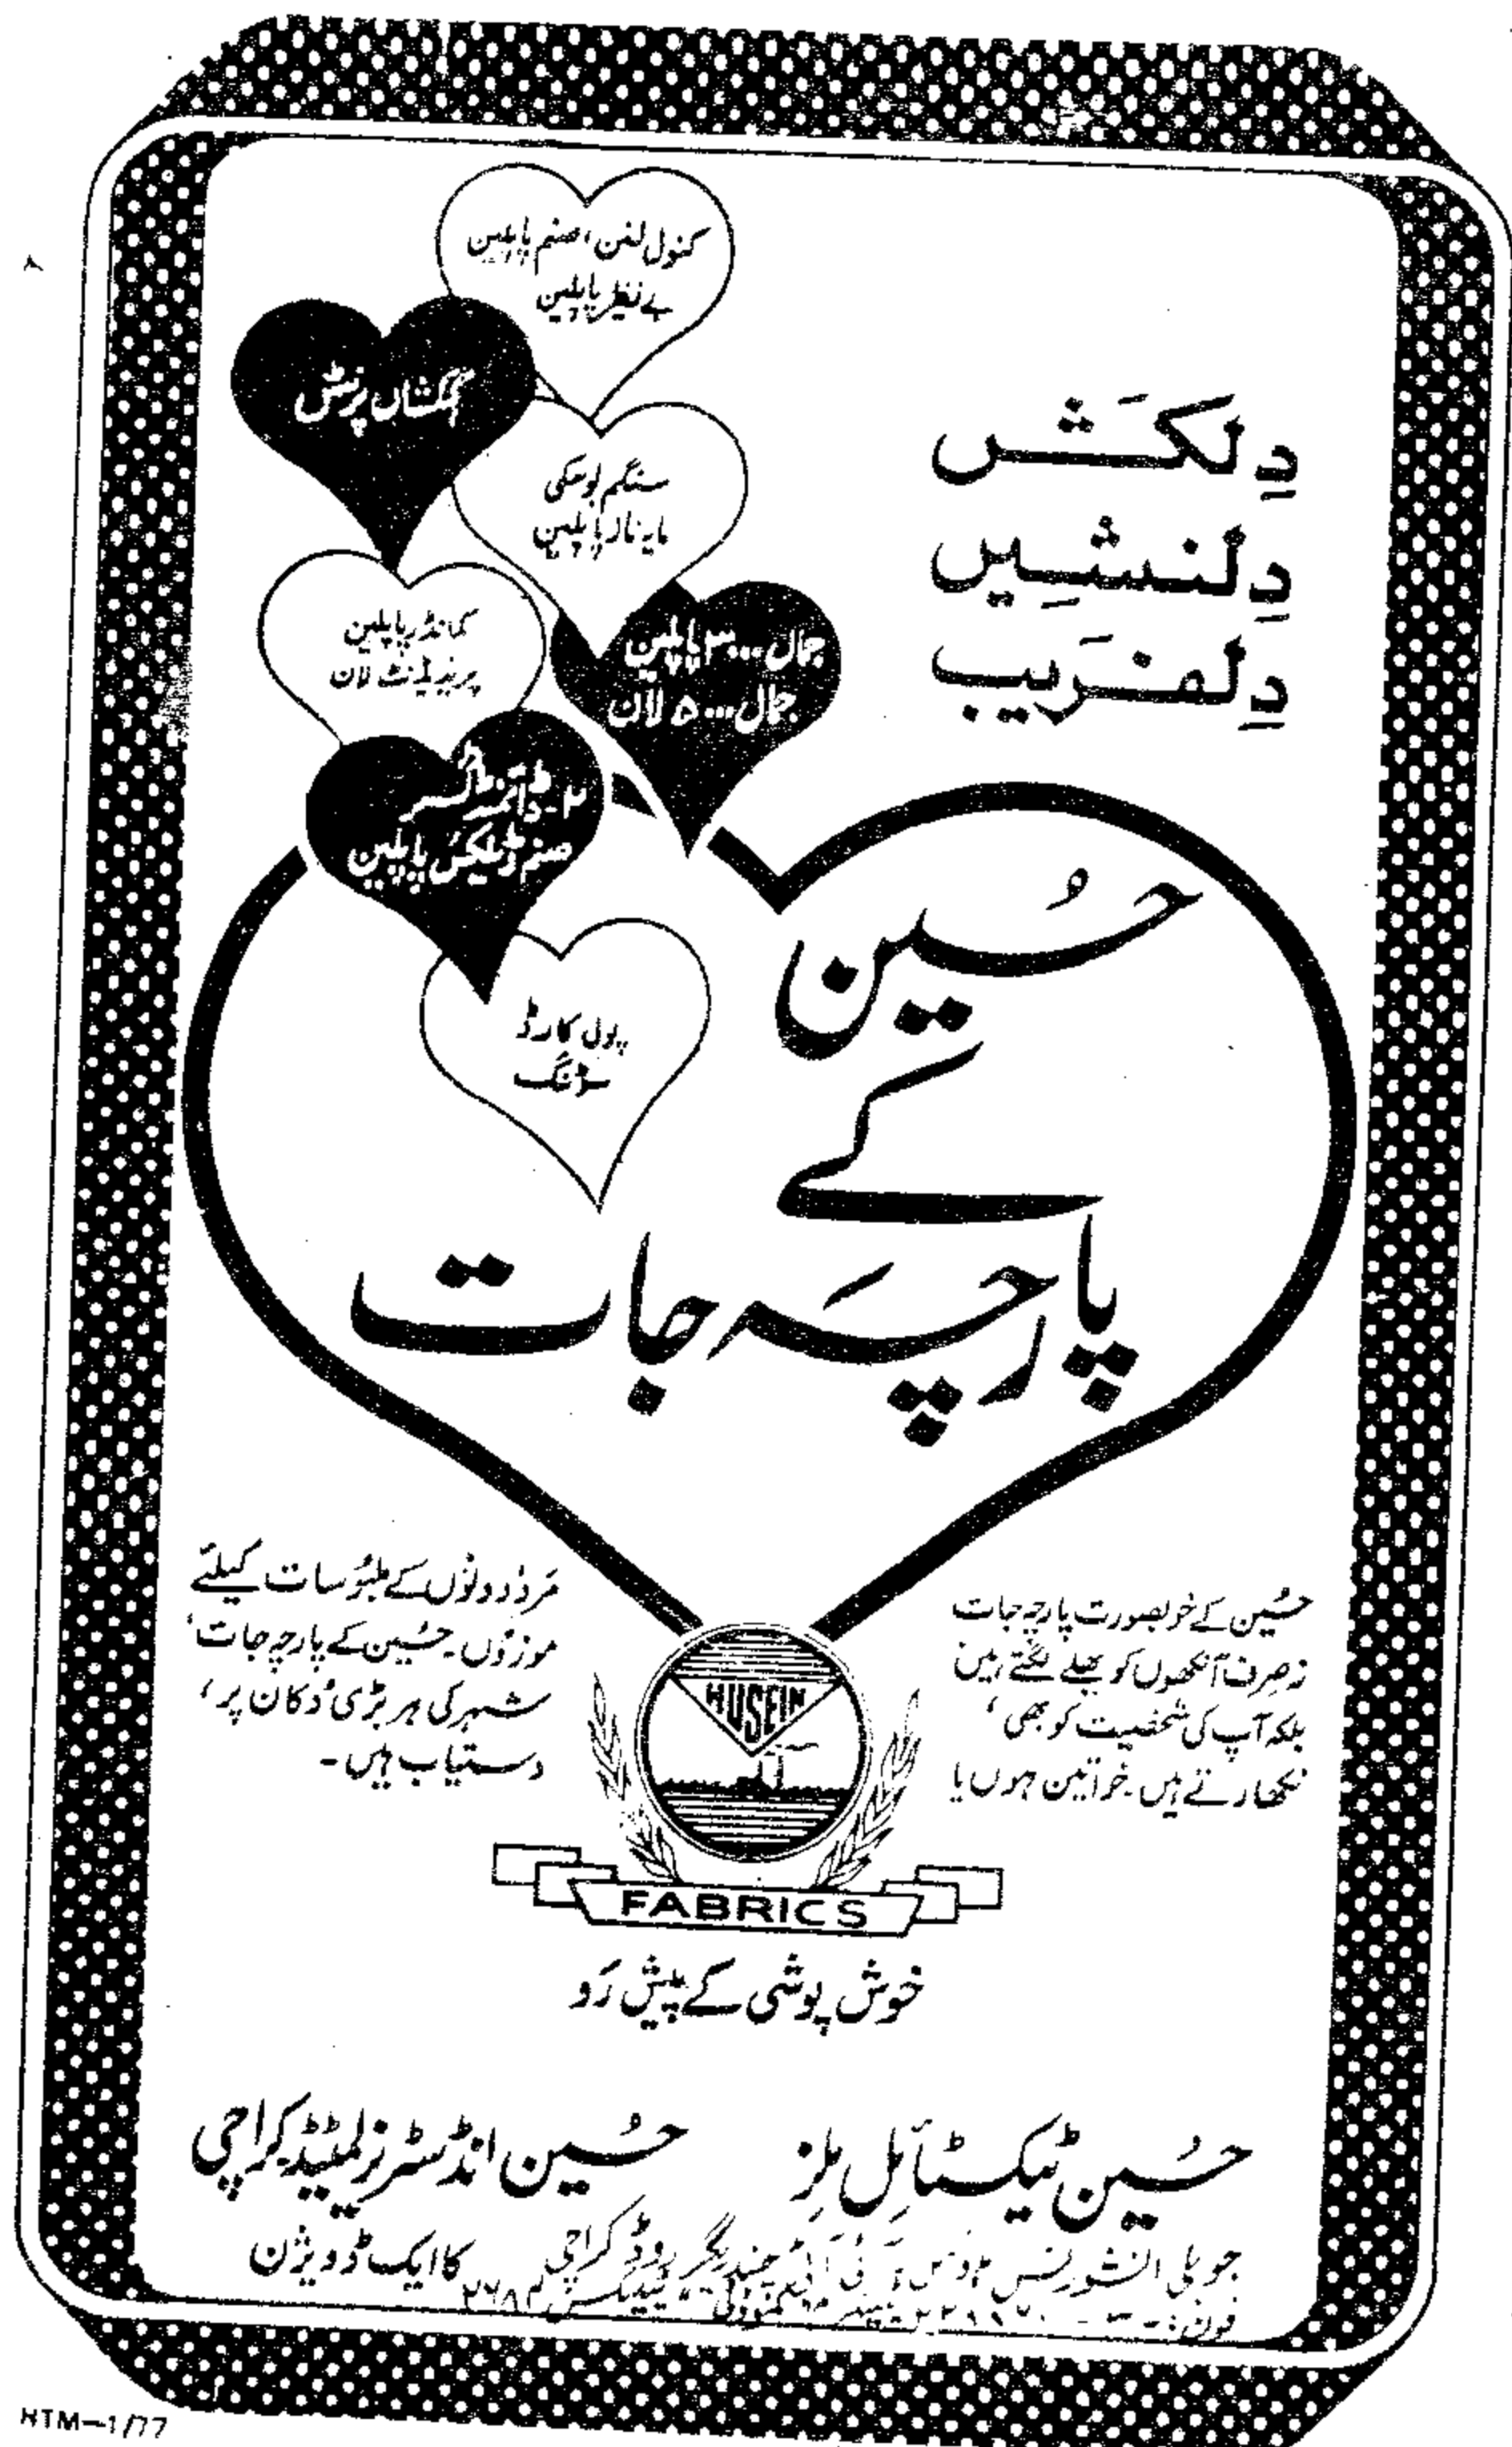 کنول لنن، صنم پاپلین
بے نظیر پاپلین
کہکشاں پرنٹس
سنگم بوسکی
مایہ ناز پاپلین
کمانڈر پاپلین
پریذیڈنٹ لان
جمال ...۳ پاپلین
جمال ...۵ لان
صنم ڈیلکس پاپلین
پول کارڈ
سوٹنگ
دِلکَش
دِلنشِیں
دِلفرَیب
حُسین
کے
پارچَہ جات
حُسین کے خوبصورت پارچہ جات
نہ صِرف آنکھوں کو بھلے لگتے ہیں
بلکہ آپ کی شخصیت کو بھی،
نکھارتے ہیں۔ خواتین ہوں یا
مَرد، دونوں کے ملبُوسات کیلئے
موزوں۔ حُسین کے پارچہ جات،
شہر کی ہر بڑی دُکان پر،
دستیاب ہیں۔
HUSEIN
FABRICS
خوش پوشی کے پیش رَو
حُسین ٹیکسٹائل مِلز
جوبلی انشورنس ہاؤس، آئی آئی چندریگر روڈ کراچی
حُسین انڈسٹریز لمیٹیڈ کراچی
کا ایک ڈویژن
HTM-1/77